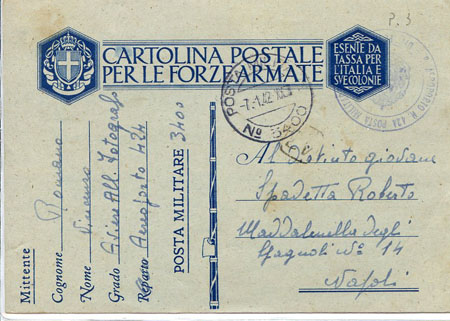 P. 3
CARTOLINA POSTALE
PER LE FORZE ARMATE
ESENTE DA
TASSA PER
L'ITALIA E
SVE COLONIE
POSTA
7.1.42
Nº 3400
Mittente
Cognome Romano
Nome Vincenzo
Grado All. Fotografo
Reparto Aeroporto 424
POSTA MILITARE 3400
Al distinto giovane
Spadetta Roberto
Maddalenella degli
Spagnoli Nº 14
Napoli